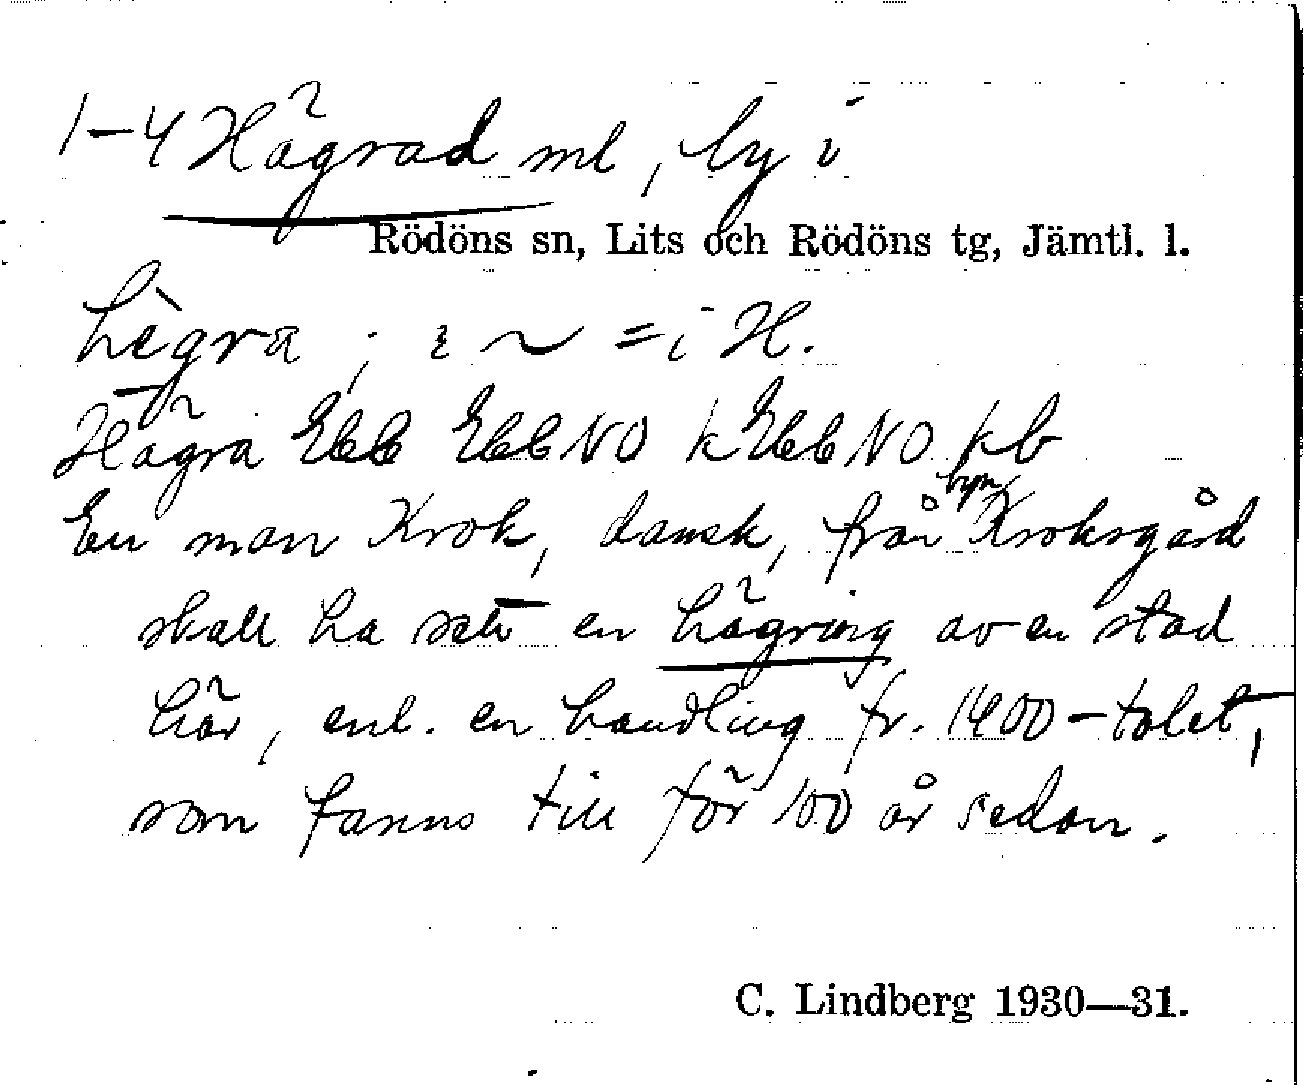 1–4 Hägrad ml, by i
Rödöns sn, Lits och Rödöns tg, Jämtl. l.
hègra ; i ~ = i H.
Hägra Ebb EbbNO k EbbNO kb
En man Krok, dansk, från byn Kroksgård
skall ha sett en hägring av en stad
här, enl. en handling fr. 1400-talet,
som fanns till för 100 år sedan.
C. Lindberg 1930—31.